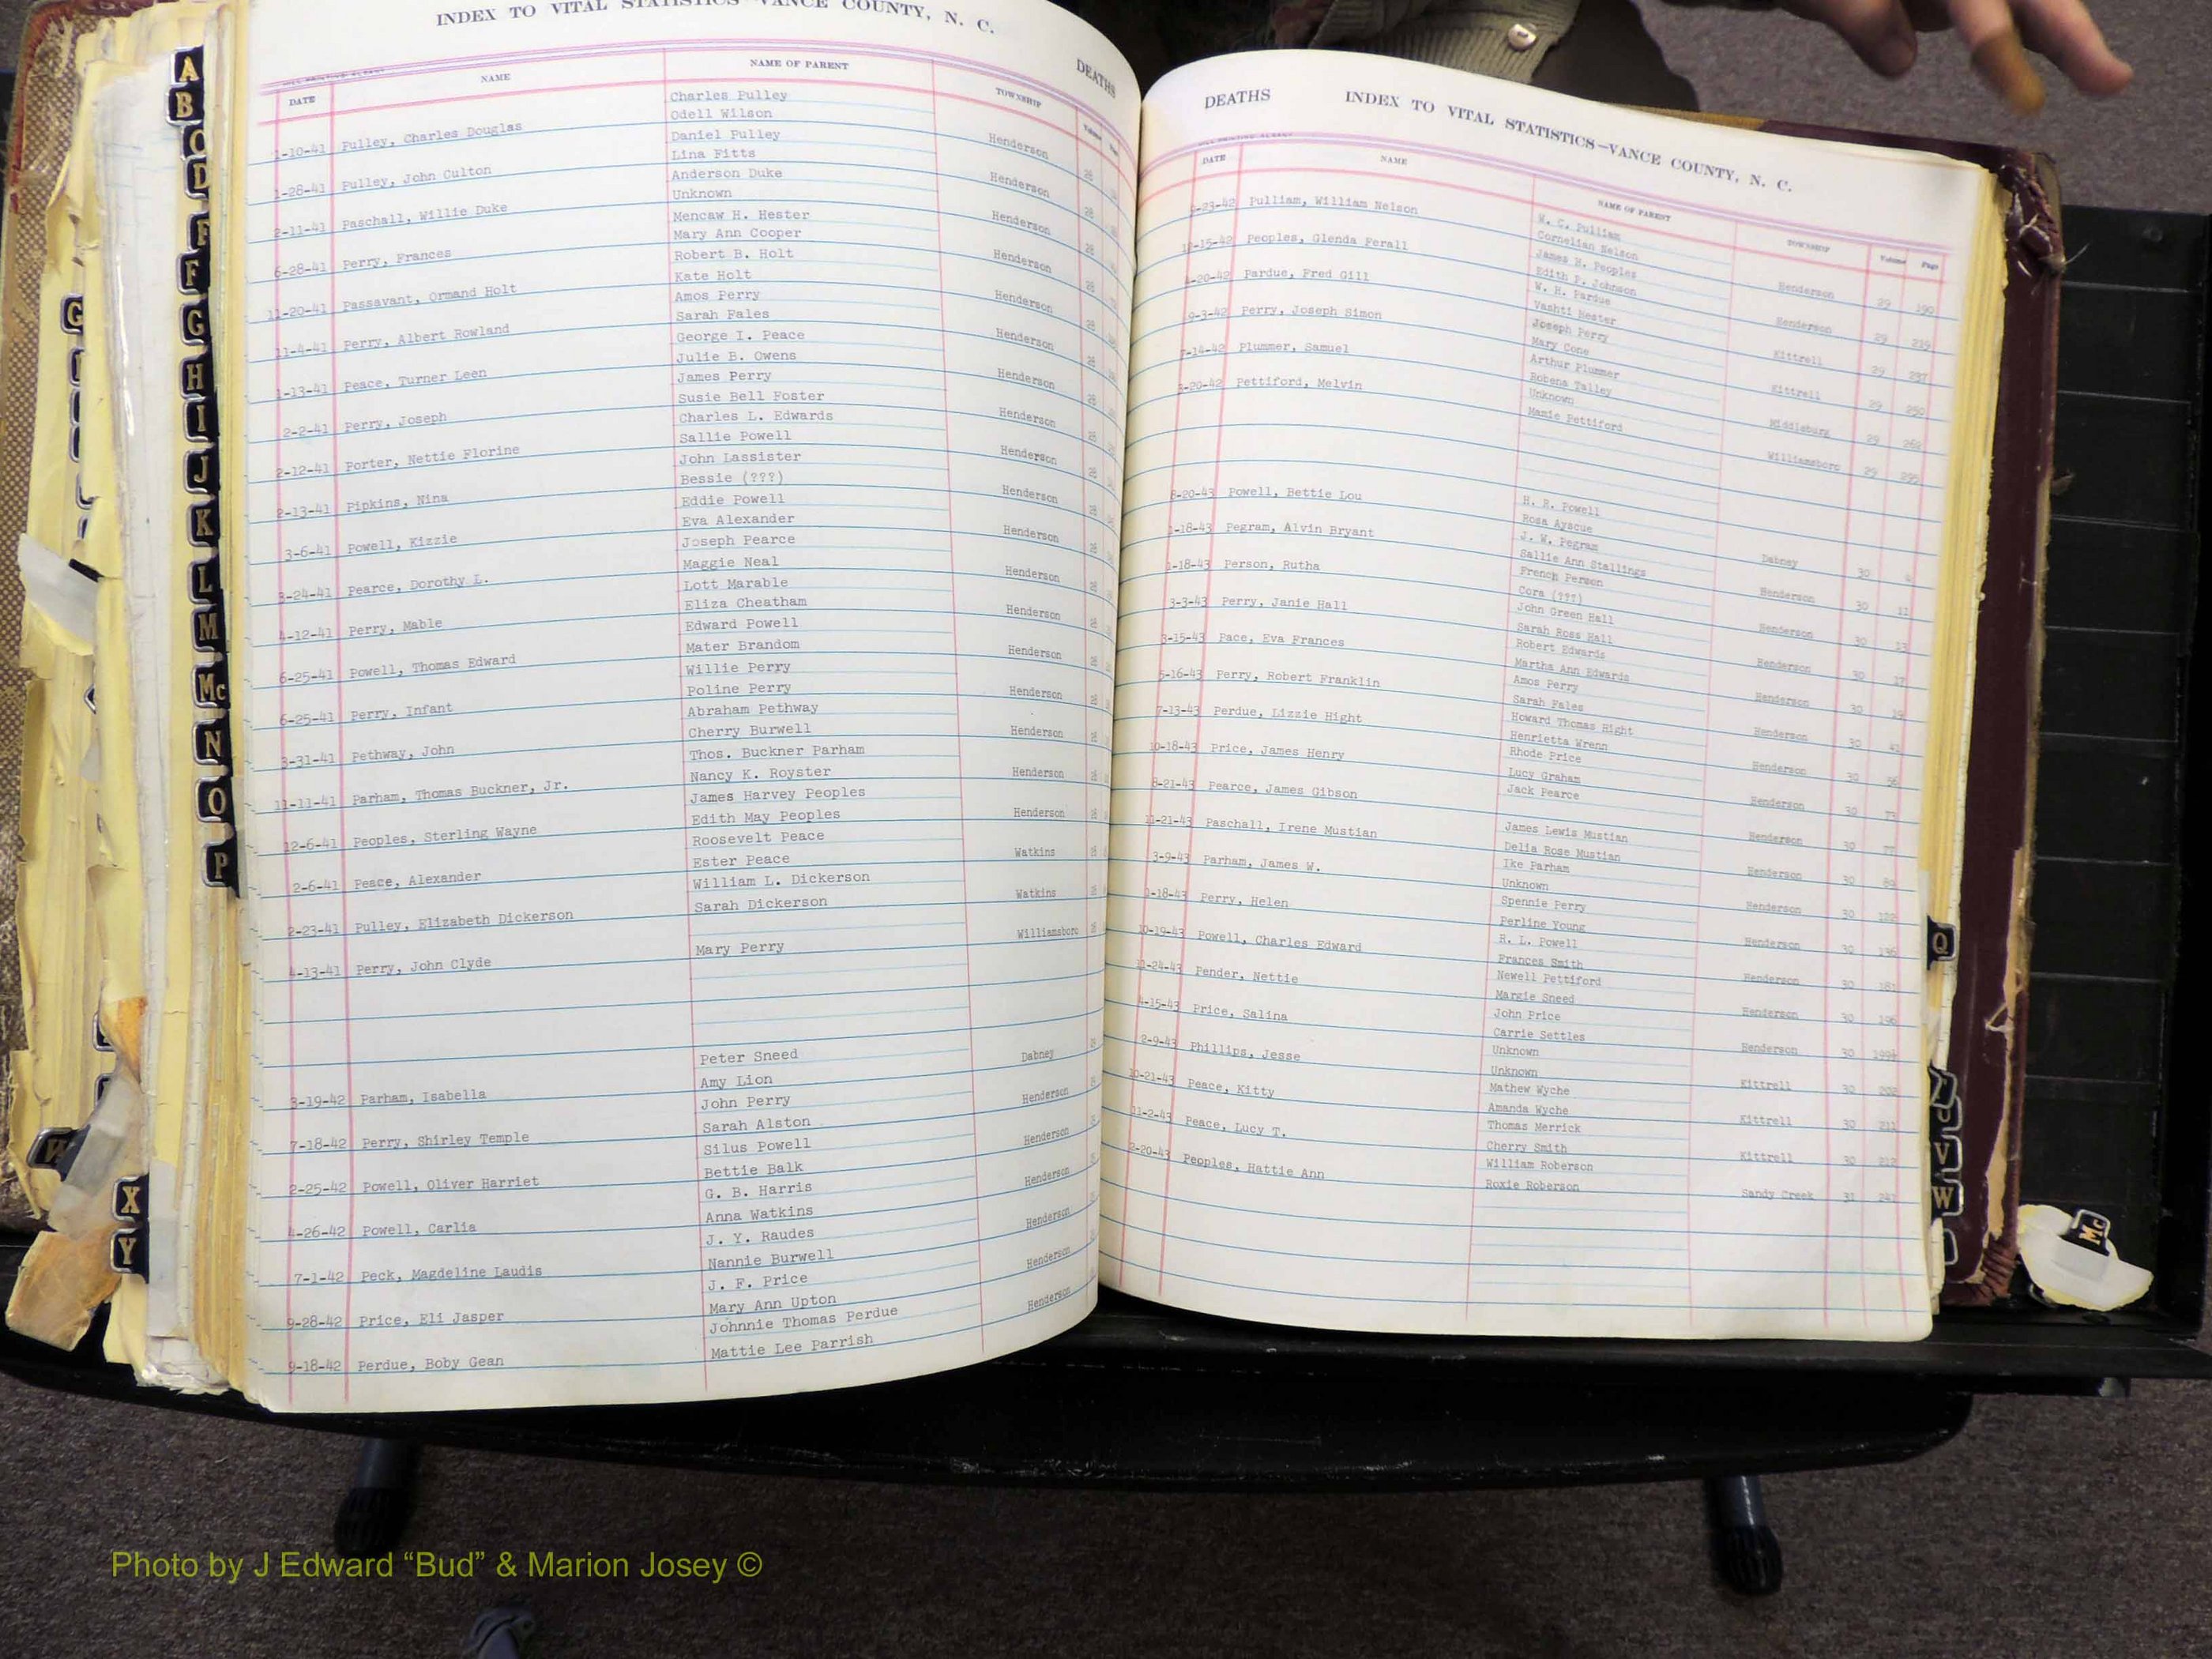 INDEX TO VITAL STATISTICS—VANCE COUNTY, N. C.
DEATHS
DATE NAME NAME OF PARENT TOWNSHIP
Charles Pulley
1-10-41 Pulley, Charles Douglas Odell Wilson Henderson 28
Daniel Pulley
1-28-41 Pulley, John Culton Lina Fitts Henderson 28
Anderson Duke
2-11-41 Paschall, Willie Duke Unknown Henderson 28
Mencaw H. Hester
6-28-41 Perry, Frances Mary Ann Cooper Henderson 28
Robert B. Holt
11-20-41 Passavant, Ormand Holt Kate Holt Henderson 28
Amos Perry
11-4-41 Perry, Albert Rowland Sarah Fales Henderson 28
George I. Peace
1-13-41 Peace, Turner Leen Julie B. Owens Henderson 28
James Perry
2-2-41 Perry, Joseph Susie Bell Foster Henderson 28
Charles L. Edwards
2-12-41 Porter, Nettie Florine Sallie Powell Henderson 28
John Lassister
2-13-41 Pipkins, Nina Bessie (???) Henderson 28
Eddie Powell
3-6-41 Powell, Kizzie Eva Alexander Henderson 28
Joseph Pearce
3-24-41 Pearce, Dorothy L. Maggie Neal Henderson 28
Lott Marable
4-12-41 Perry, Mable Eliza Cheatham Henderson 28
Edward Powell
6-25-41 Powell, Thomas Edward Mater Brandom Henderson 28
Willie Perry
6-25-41 Perry, Infant Poline Perry Henderson 28
Abraham Pethway
3-31-41 Pethway, John Cherry Burwell Henderson 28
Thos. Buckner Parham
11-11-41 Parham, Thomas Buckner, Jr. Nancy K. Royster Henderson 28
James Harvey Peoples
12-6-41 Peoples, Sterling Wayne Edith May Peoples Henderson 28
Roosevelt Peace
2-6-41 Peace, Alexander Ester Peace Watkins 28
William L. Dickerson
2-23-41 Pulley, Elizabeth Dickerson Sarah Dickerson Watkins 28
4-13-41 Perry, John Clyde Mary Perry Williamsboro 28
Peter Sneed
3-19-42 Parham, Isabella Amy Lion Dabney
John Perry
7-18-42 Perry, Shirley Temple Sarah Alston Henderson
Silus Powell
2-25-42 Powell, Oliver Harriet Bettie Balk Henderson
G. B. Harris
4-26-42 Powell, Carlia Anna Watkins Henderson
J. Y. Raudes
7-1-42 Peck, Magdeline Laudis Nannie Burwell Henderson
J. F. Price
9-28-42 Price, Eli Jasper Mary Ann Upton Henderson
Johnnie Thomas Perdue
9-18-42 Perdue, Boby Gean Mattie Lee Parrish Henderson
DEATHS INDEX TO VITAL STATISTICS—VANCE COUNTY, N. C.
DATE NAME NAME OF PARENT TOWNSHIP Volume Page
W. C. Pulliam
-23-42 Pulliam, William Nelson Cornelian Nelson Henderson 29 190
James H. Peoples
-15-42 Peoples, Glenda Ferall Edith P. Johnson Henderson 29 219
W. H. Pardue
4-20-42 Pardue, Fred Gill Vashti Hester Kittrell 29 237
Joseph Perry
9-3-42 Perry, Joseph Simon Mary Cone Kittrell 29 250
Arthur Plummer
7-14-42 Plummer, Samuel Robena Talley Middleburg 29 262
Unknown
-20-42 Pettiford, Melvin Mamie Pettiford Williamsboro 29 295
H. R. Powell
8-20-43 Powell, Bettie Lou Rosa Ayscue Dabney 30 4
J. W. Pegram
1-18-43 Pegram, Alvin Bryant Sallie Ann Stallings Henderson 30 11
French Person
1-18-43 Person, Rutha Cora (???) Henderson 30 13
John Green Hall
3-3-43 Perry, Janie Hall Sarah Ross Hall Henderson 30 17
Robert Edwards
3-15-43 Pace, Eva Frances Martha Ann Edwards Henderson 30 19
Amos Perry
5-16-43 Perry, Robert Franklin Sarah Fales Henderson 30 41
Howard Thomas Hight
7-13-43 Perdue, Lizzie Hight Henrietta Wrenn Henderson 30 56
Rhode Price
10-18-43 Price, James Henry Lucy Graham Henderson 30 73
8-21-43 Pearce, James Gibson Jack Pearce Henderson 30 77
James Lewis Mustian
11-21-43 Paschall, Irene Mustian Delia Rose Mustian Henderson 30 89
Ike Parham
3-9-43 Parham, James W. Unknown Henderson 30 122
Spennie Perry
1-18-43 Perry, Helen Perline Young Henderson 30 136
R. L. Powell
10-19-43 Powell, Charles Edward Frances Smith Henderson 30 181
Newell Pettiford
11-24-43 Pender, Nettie Margie Sneed Henderson 30 196
John Price
4-15-43 Price, Salina Carrie Settles Henderson 30
Unknown
2-9-43 Phillips, Jesse Unknown Kittrell 30
Mathew Wyche
10-21-43 Peace, Kitty Amanda Wyche Kittrell 30 211
Thomas Merrick
11-2-43 Peace, Lucy T. Cherry Smith Kittrell 30 212
William Roberson
2-20-43 Peoples, Hattie Ann Roxie Roberson Sandy Creek 31 241
A
B
C
D
F
F
G
H
I
J
K
L
M
Mc
N
O
P
G
W
X
Y
Q
V
W
Mc
Photo by J Edward “Bud” & Marion Josey ©